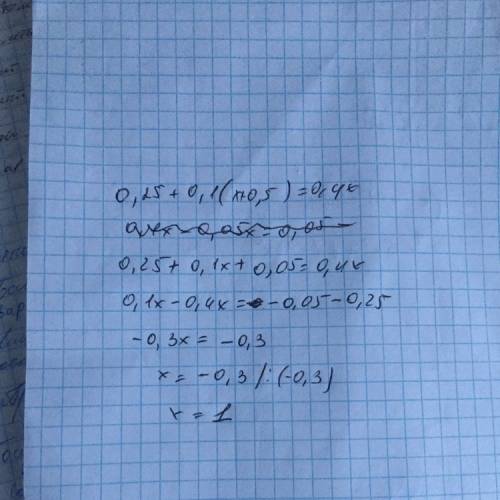 0,25 + 0,1(x+0,5) = 0,4x
0,25 + 0,1x + 0,05 = 0,4x
0,1x - 0,4x = -0,05 - 0,25
-0,3x = -0,3
x = -0,3 /:(-0,3)
x = 1